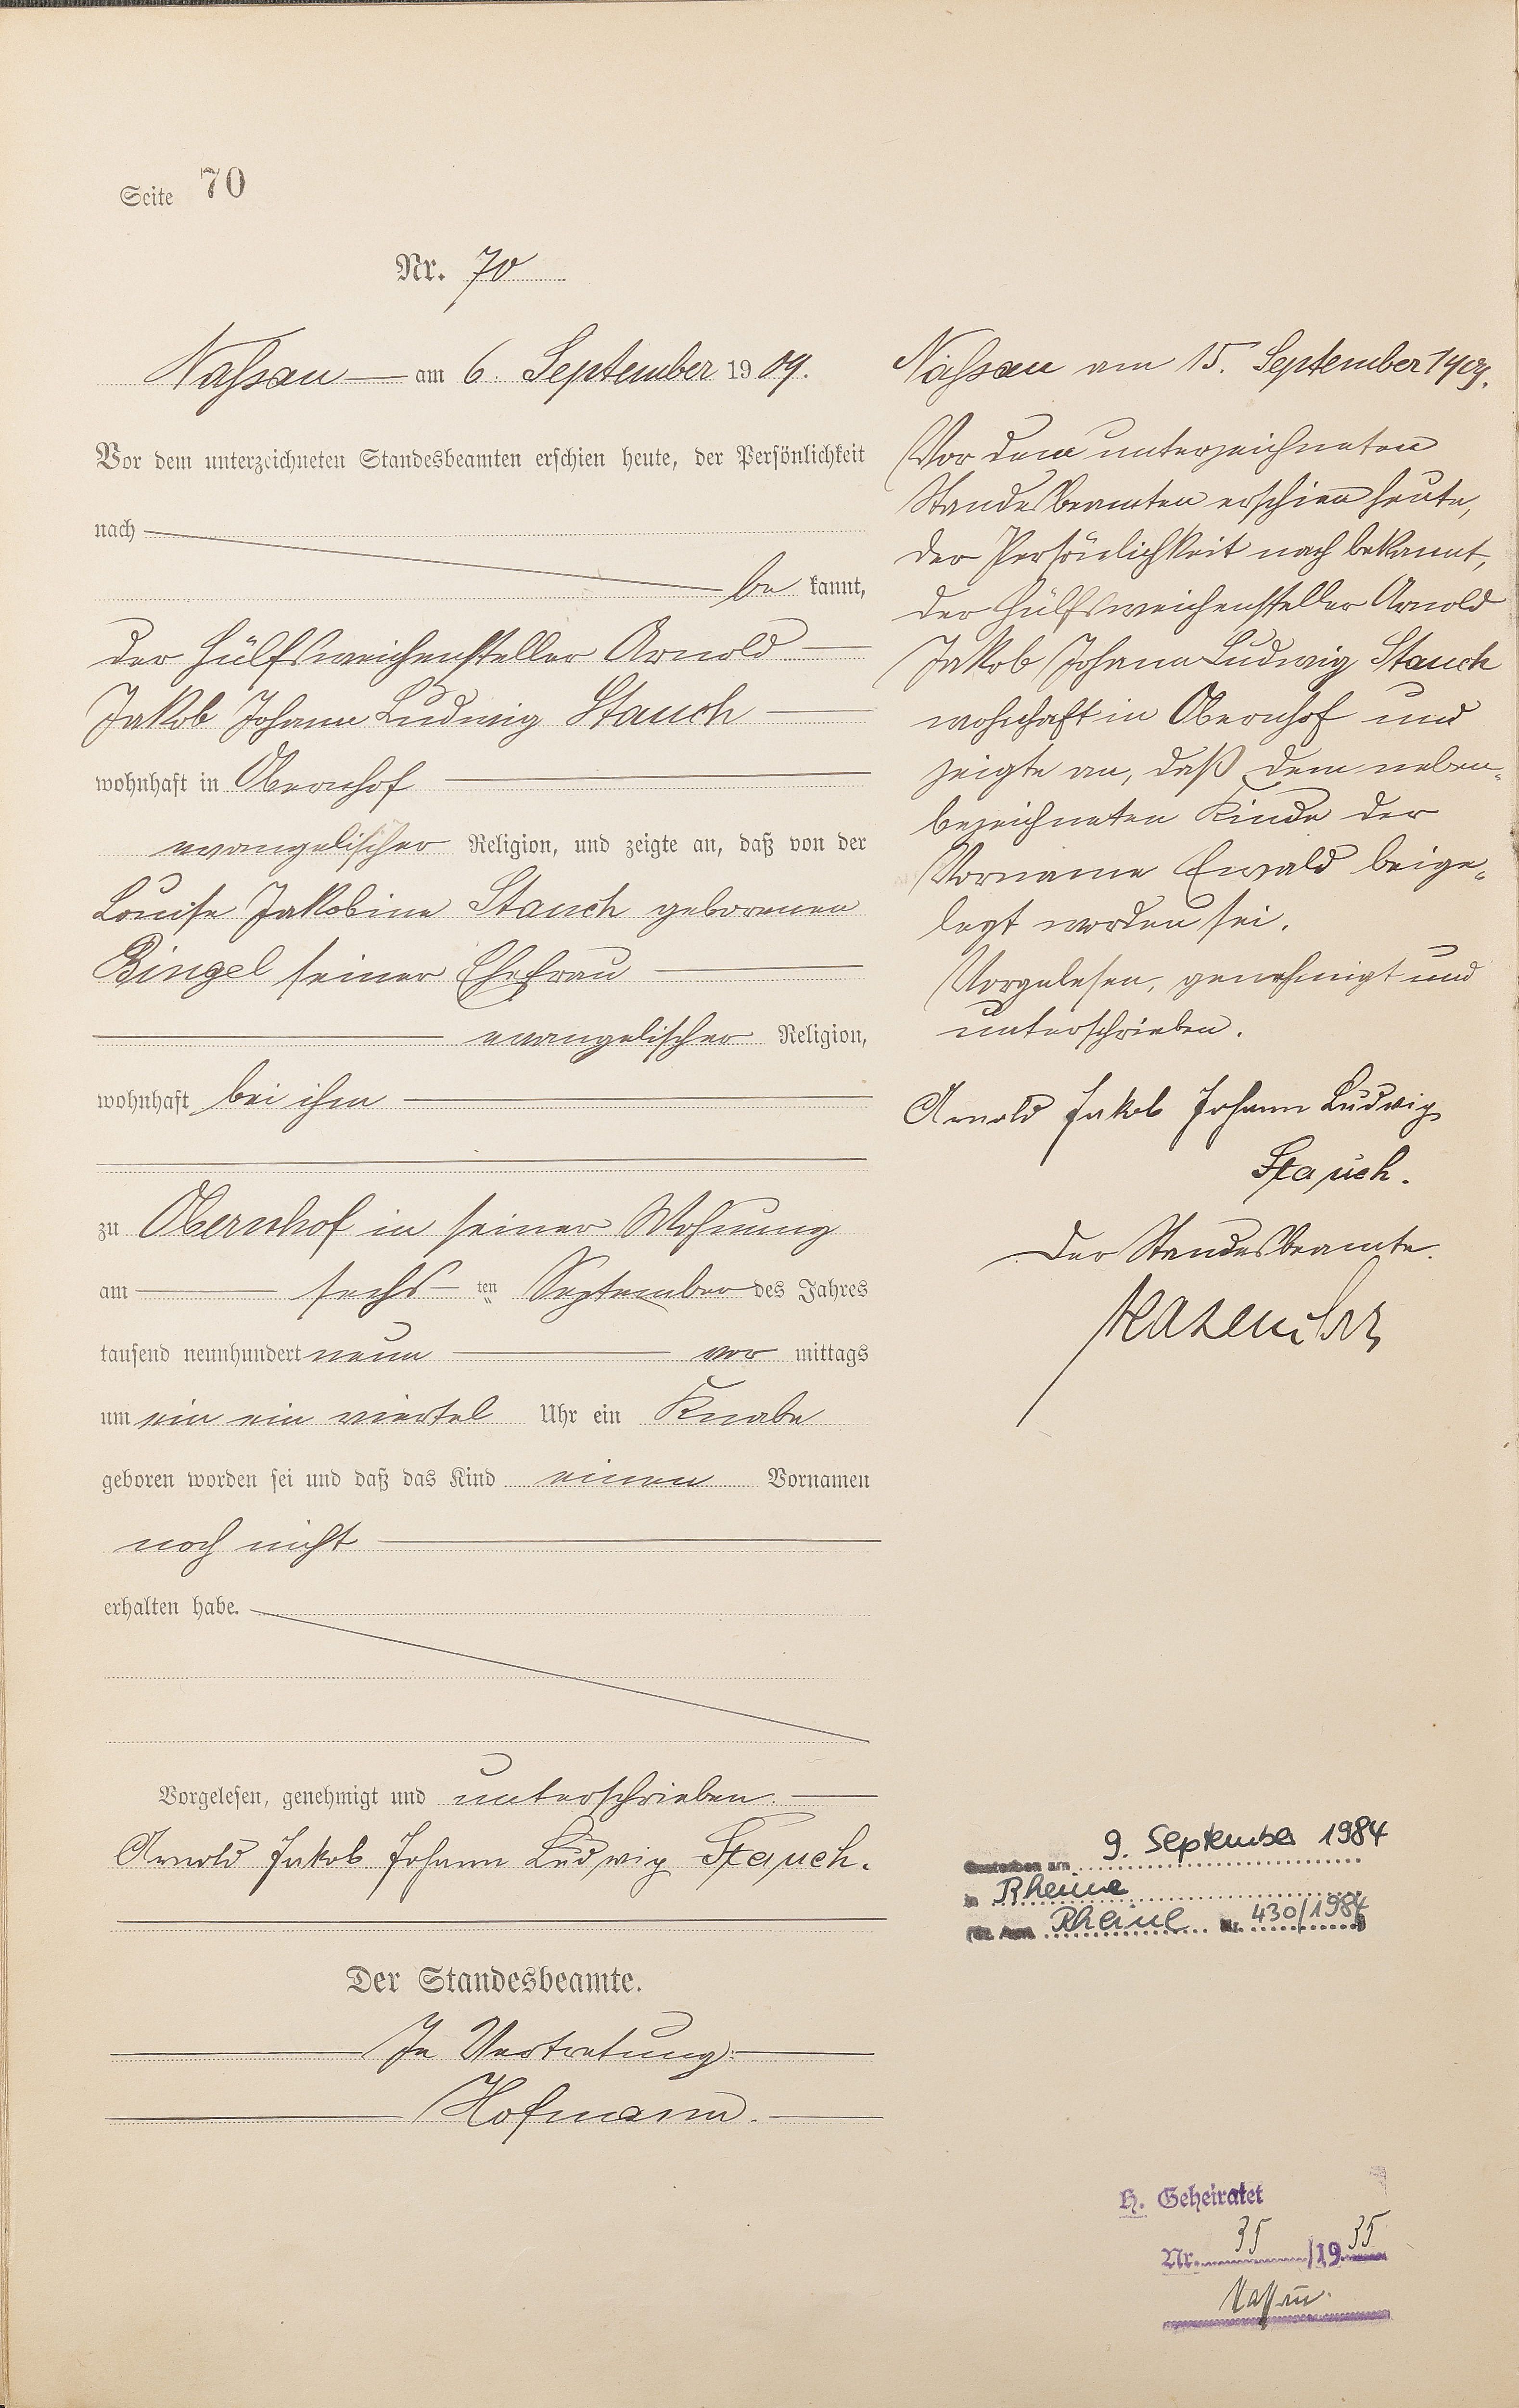 Seite 70
Nr. 70
Nassau am 6. September 1909.
Vor dem unterzeichneten Standesbeamten erschien heute, der Persönlichkeit
nach
be kannt,
der Hülfsweichensteller Arnold
Jakob Johann Ludwig Stauch
wohnhaft in Obernhof
evangelischer Religion, und zeigte an, daß von der
Louise Jakobine Stauch geborenen
Bingel seiner Ehefrau
evangelischer Religion,
wohnhaft bei ihm
zu Obernhof in seiner Wohnung
am sechs ten September des Jahres
tausend neunhundert neun vor mittags
um ein ein viertel Uhr ein Knabe
geboren worden sei und daß das Kind einen Vornamen
noch nicht
erhalten habe.
Vorgelesen, genehmigt und unterschrieben.
Arnold Jakob Johann Ludwig Stauch.
Der Standesbeamte.
In Vertretung:
Hofmann.
Nassau am 15. September 1909.
Vor dem unterzeichneten
Standesbeamten erschien heute,
der Persönlichkeit nach bekannt,
der Hülfsweichensteller Arnold
Jakob Johann Ludwig Stauch
wohnhaft in Obernhof und
zeigte an, daß dem neben-
bezeichneten Kinde der
Vorname Ewald beige-
legt worden sei.
Vorgelesen, genehmigt und
unterschrieben.
Arnold Jakob Johann Ludwig
Stauch.
Der Standesbeamte.
Gestorben am 9. September 1984
in Rheine
St. Amt Rheine Nr. 430/1984
H. Geheiratet
Nr. 35/1935
Nassau.